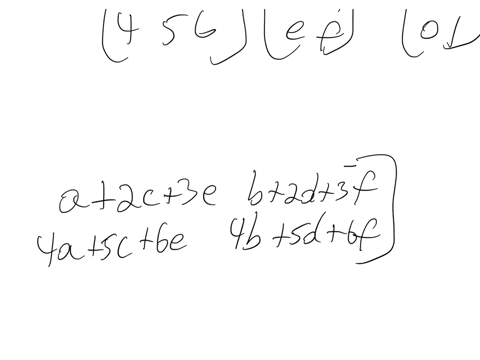 (4 5 6) (e f) (0 1
a+2c+3e b+2d+3f]
4a+5c+6e 4b+5d+6f]